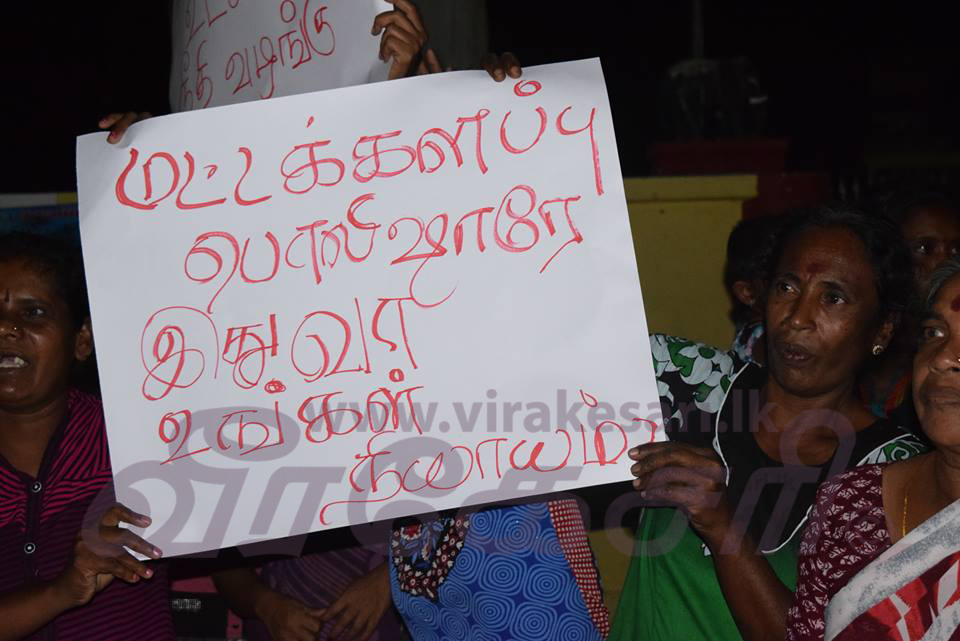 நீதி வழங்கு
மட்டக்களப்பு
பொலிஷாரே
இதுவா
உங்கள்
நியாயம்
www.virakesari.lk
வீரகேசரி